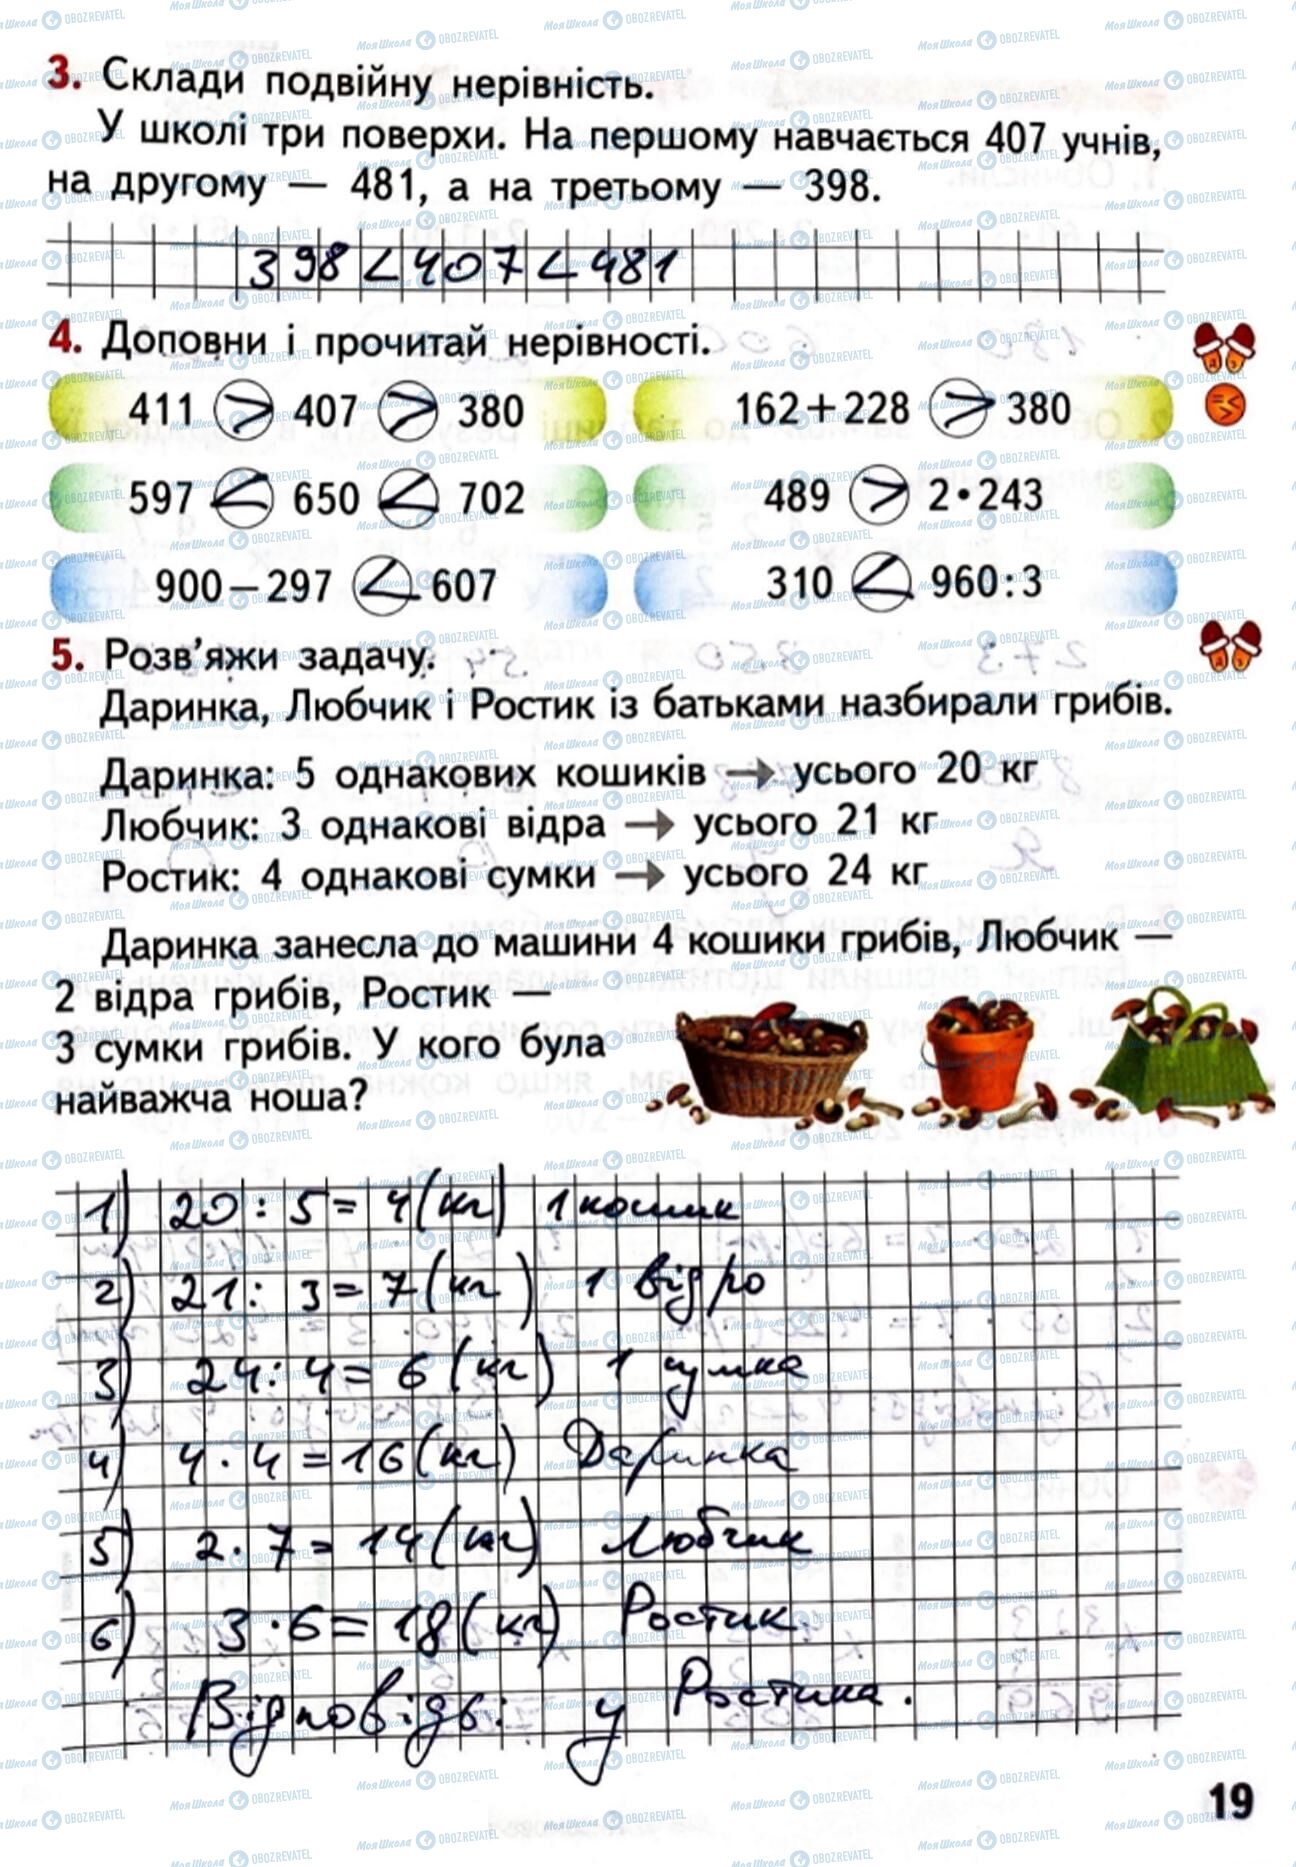 3. Склади подвійну нерівність.
У школі три поверхи. На першому навчається 407 учнів,
на другому — 481, а на третьому — 398.
398 < 407 < 481
4. Доповни і прочитай нерівності.
411 > 407 > 380
162 + 228 > 380
597 < 650 < 702
489 > 2 • 243
900 – 297 < 607
310 < 960 : 3
5. Розв’яжи задачу.
Даринка, Любчик і Ростик із батьками назбирали грибів.
Даринка: 5 однакових кошиків → усього 20 кг
Любчик: 3 однакові відра → усього 21 кг
Ростик: 4 однакові сумки → усього 24 кг
Даринка занесла до машини 4 кошики грибів, Любчик —
2 відра грибів, Ростик —
3 сумки грибів. У кого була
найважча ноша?
1) 20 : 5 = 4 (кг) 1 кошик
2) 21 : 3 = 7 (кг) 1 відро
3) 24 : 4 = 6 (кг) 1 сумка
4) 4 · 4 = 16 (кг) Даринка
5) 2 · 7 = 14 (кг) Любчик
6) 3 · 6 = 18 (кг) Ростик.
Відповідь: у Ростика.
19
МояШкола OBOZREVATEL